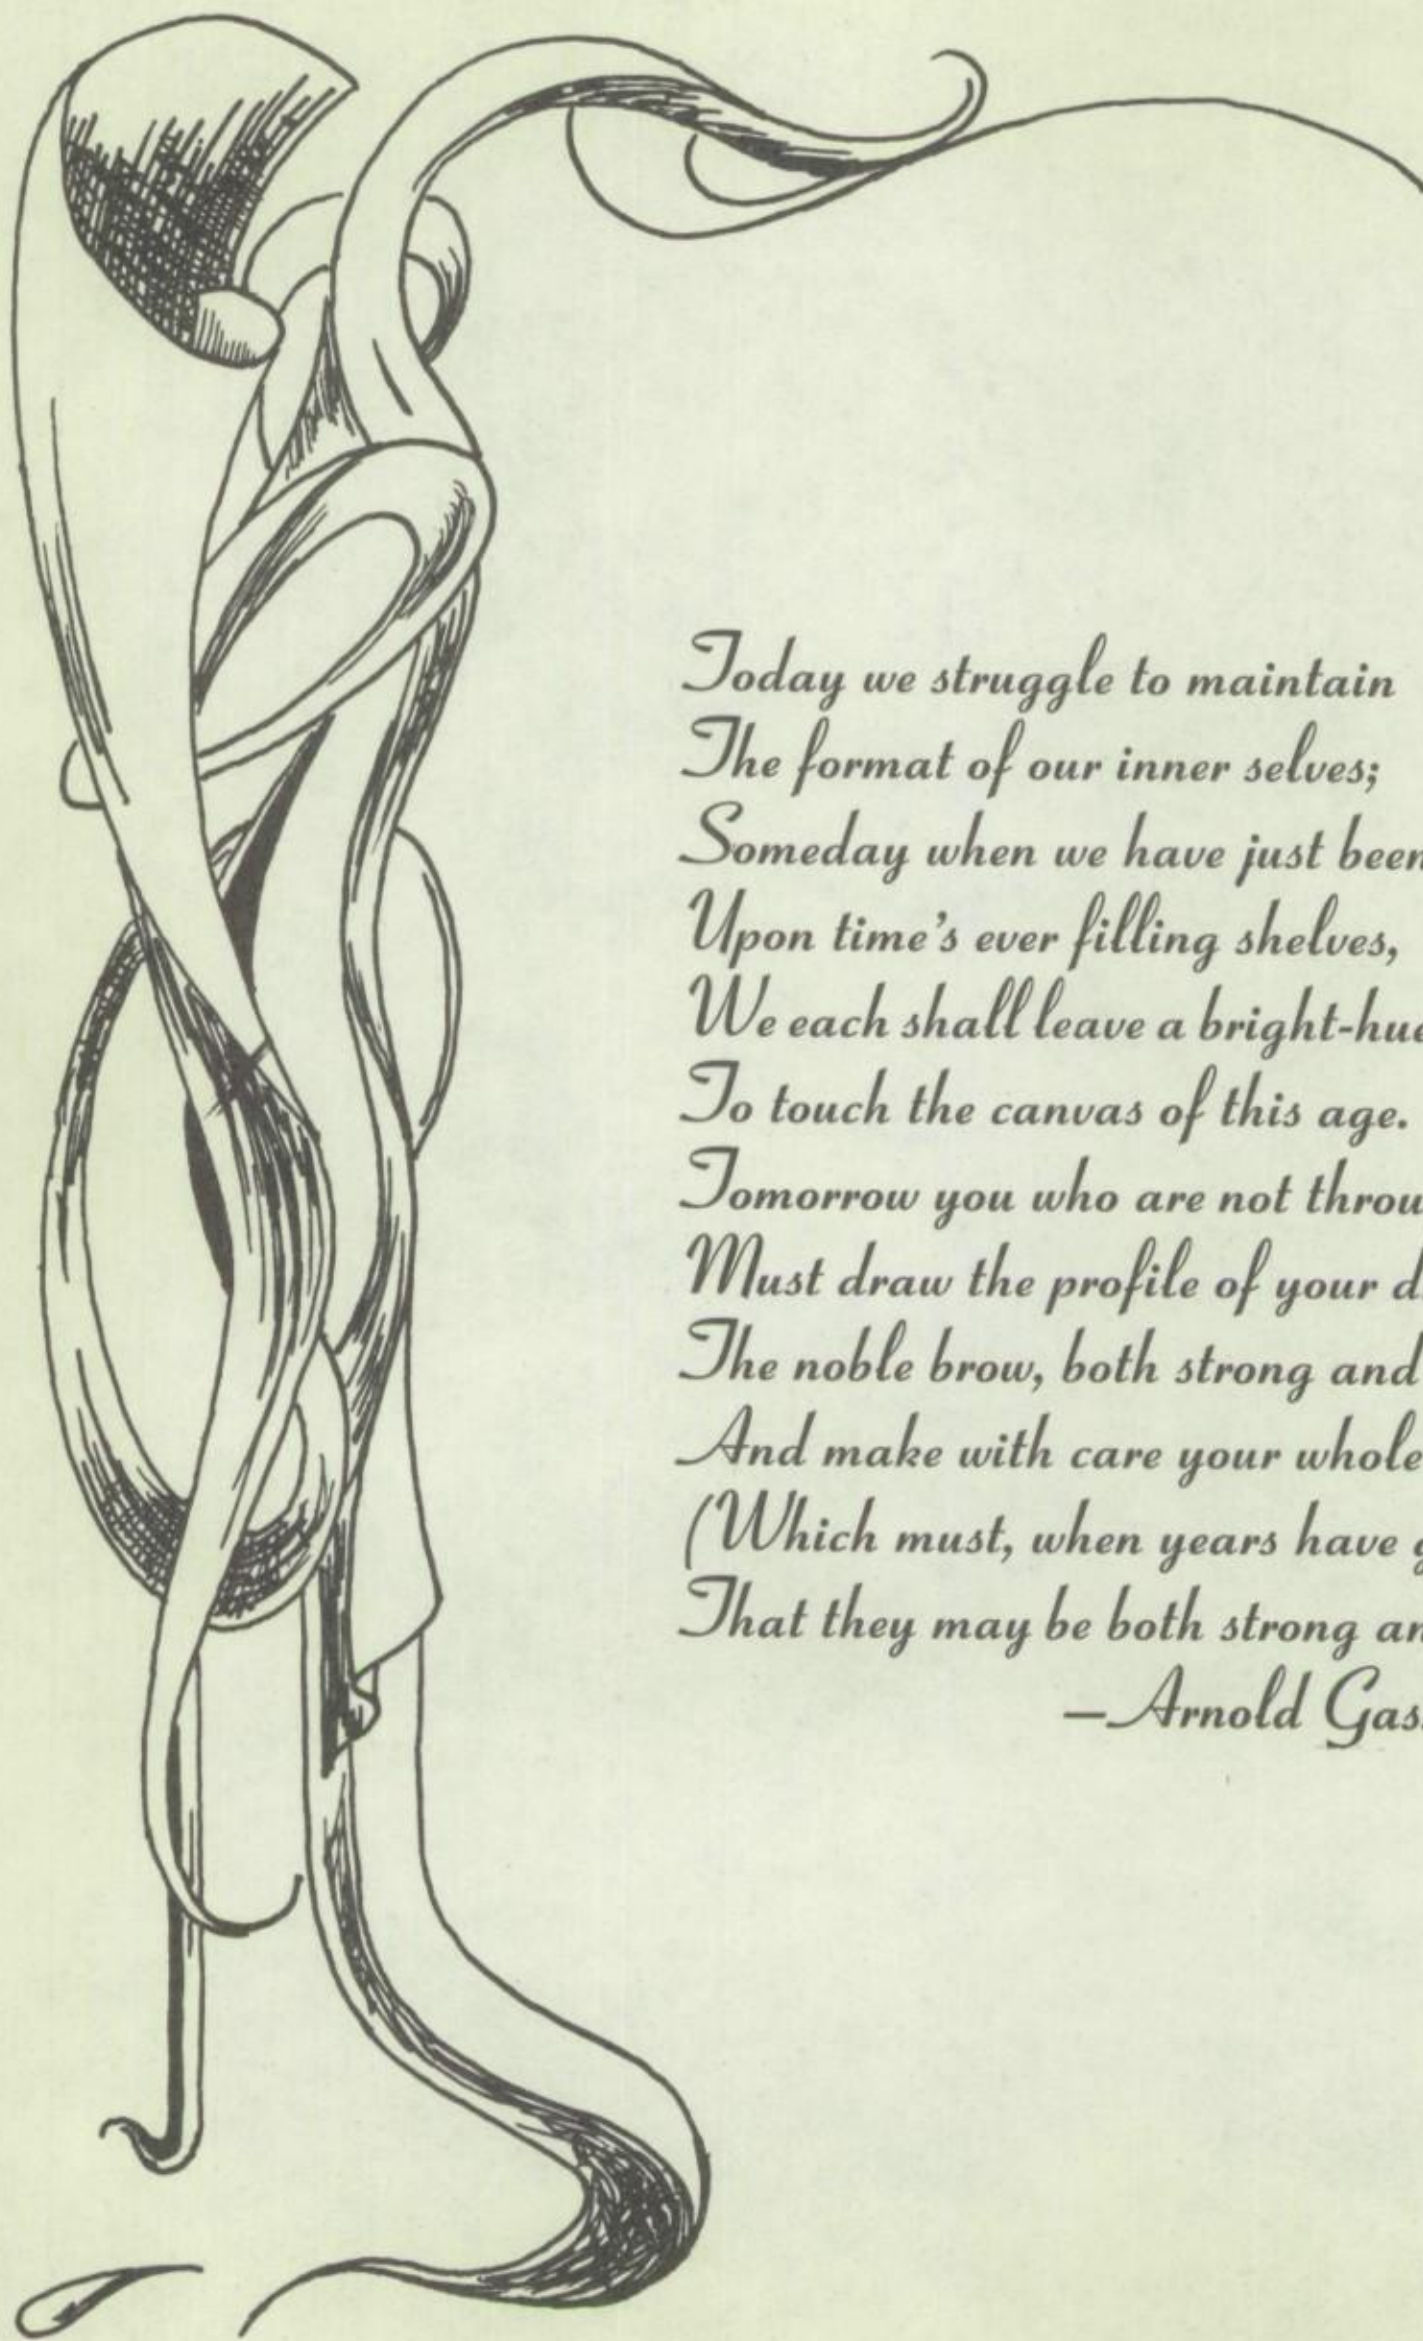 Today we struggle to maintain
The format of our inner selves;
Someday when we have just been
Upon time's ever filling shelves,
We each shall leave a bright-hue
To touch the canvas of this age.
Tomorrow you who are not throu
Must draw the profile of your d
The noble brow, both strong and
And make with care your whole
(Which must, when years have g
That they may be both strong an
—Arnold Gas